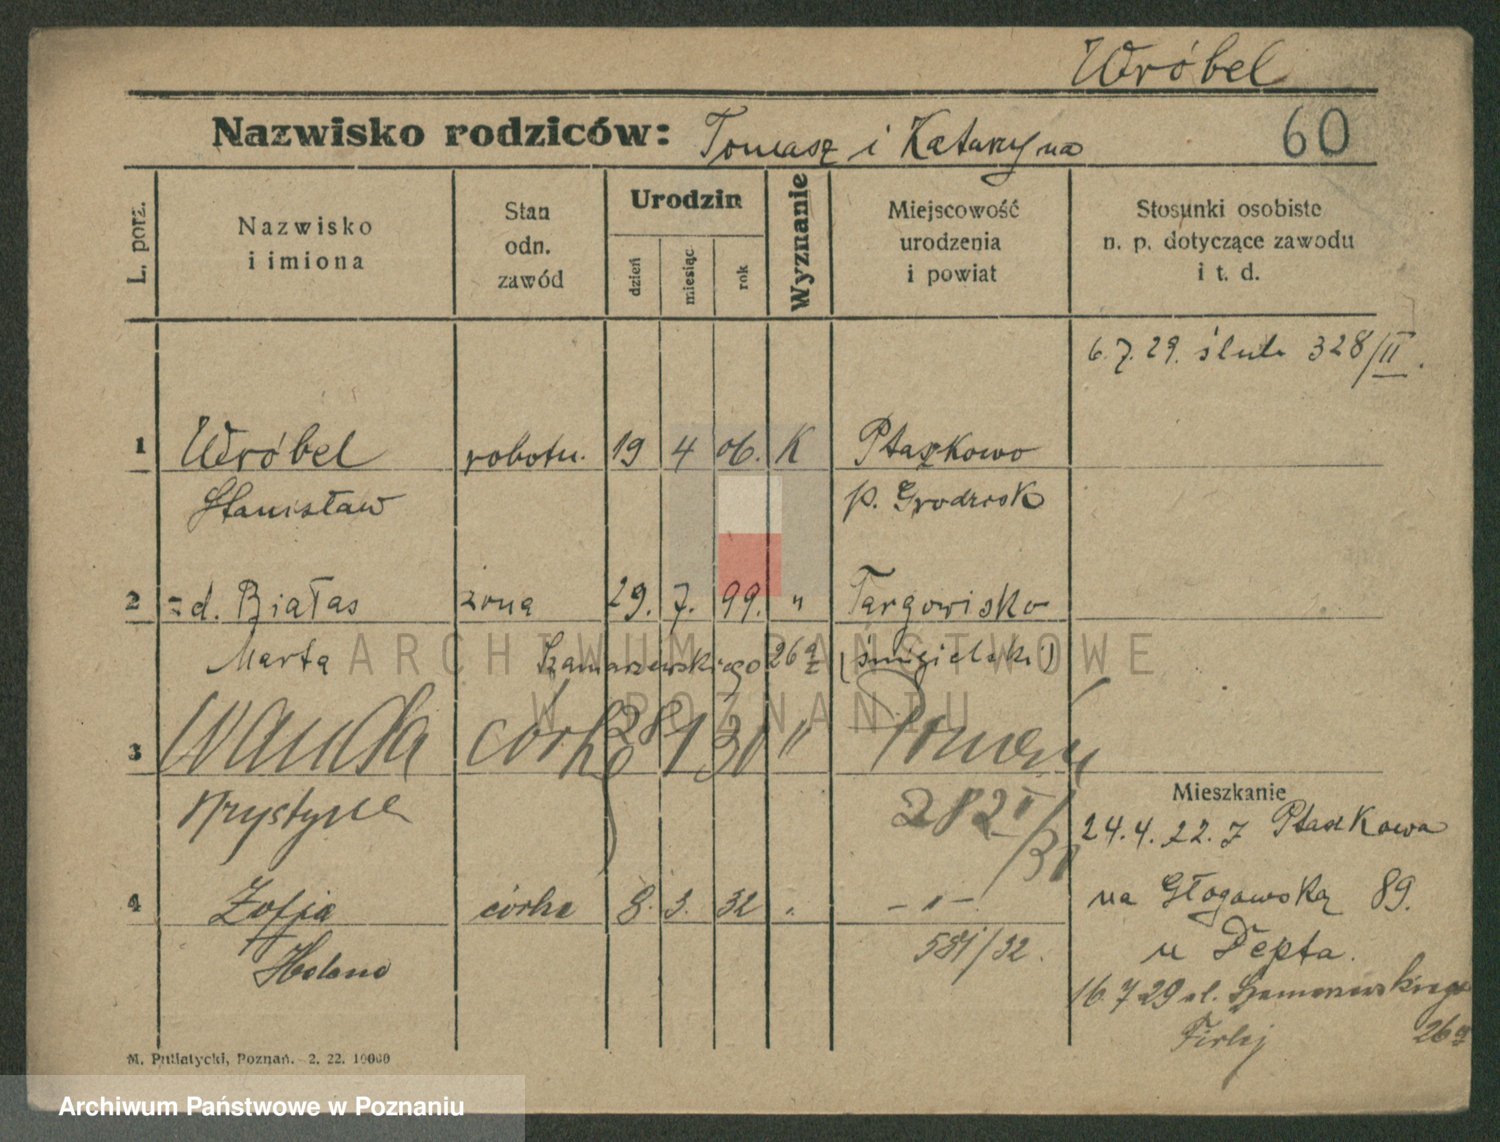 Wróbel
Nazwisko rodziców: Tomasz i Katarzyna 60
L. porz. Nazwisko i imiona Stan odn. zawód Urodzin dzień miesiąc rok Wyznanie Miejscowość urodzenia i powiat Stosunki osobiste n. p. dotyczące zawodu i t. d.
6. 7. 29. ślub 328/II.
1 Wróbel robotn. 19 4 06. K Ptaszkowo
Stanisław p. Grodzisk
2 = d. Białas żona 29. 7. 99. " Targowisko
Marta Szamarzewskiego 26a (śmigielski)
3 Wanda córka 28 1 30 " Poznań
Krystyna 282 II/30
Mieszkanie
24. 4. 22. z Ptaszkowa
4 Zofja córka 8. 3. 32 " – " –
na Głogowską 89.
Helena 581/32.
u Depta.
16. 7 29 ul. Szamarzewskiego
Firlej 26a
M. Putiatycki, Poznań. - 2. 22. 10000
ARCHIWUM PAŃSTWOWE
W POZNANIU
Archiwum Państwowe w Poznaniu